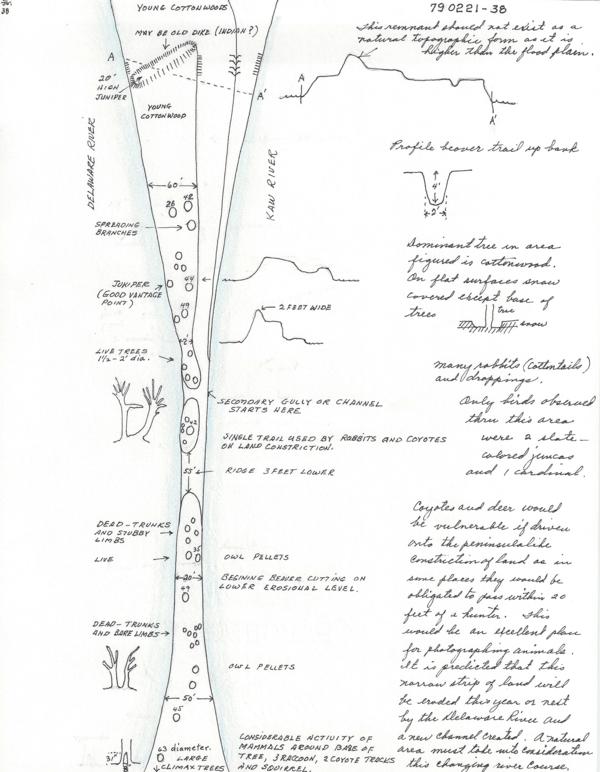 38
790221-38
YOUNG COTTONWOODS
MAY BE OLD DIKE (INDIAN?)
A
20'
HIGH
JUNIPER
A'
YOUNG
COTTONWOOD
DELAWARE RIVER
KAW RIVER
This remnant should not exist as a
natural topographic form as it is
higher than the flood plain.
A
A'
Profile beaver trail up bank
4'
2'
60'
26
48
SPREADING
BRANCHES
JUNIPER
(GOOD VANTAGE
POINT)
44
49
2 FEET WIDE
2'
LIVE TREES
1½-2' dia.
Dominant tree in area
figured is cottonwood.
On flat surfaces snow
covered except base of
trees
tree
snow
many rabbits (cottontails)
and droppings.
Only birds observed
thru this area
were 2 slate-
colored juncos
and 1 cardinal.
SECONDARY GULLY OR CHANNEL
STARTS HERE
42
SINGLE TRAIL USED BY RABBITS AND COYOTES
ON LAND CONSTRICTION.
55'
RIDGE 3 FEET LOWER
DEAD-TRUNKS
AND STUBBY
LIMBS
LIVE
35
OWL PELLETS
20'
BEGINING BEAVER CUTTING ON
LOWER EROSIONAL LEVEL.
49
DEAD-TRUNKS
AND BARE LIMBS
OWL PELLETS
50'
45
63 diameter.
LARGE
CLIMAX TREES
3'
CONSIDERABLE ACTIVITY OF
MAMMALS AROUND BASE OF
TREE, 3 RACOON, 2 COYOTE TRACKS
AND SQUIRREL.
Coyotes and deer would
be vulnerable if driven
onto the peninsulalike
constriction of land as in
some places they would be
obligated to pass within 20
feet of a hunter. This
would be an excellent place
for photographing animals.
It is predicted that this
narrow strip of land will
be eroded this year or next
by the Delaware River and
a new channel created. A natural
area must take into consideration
this changing river course.